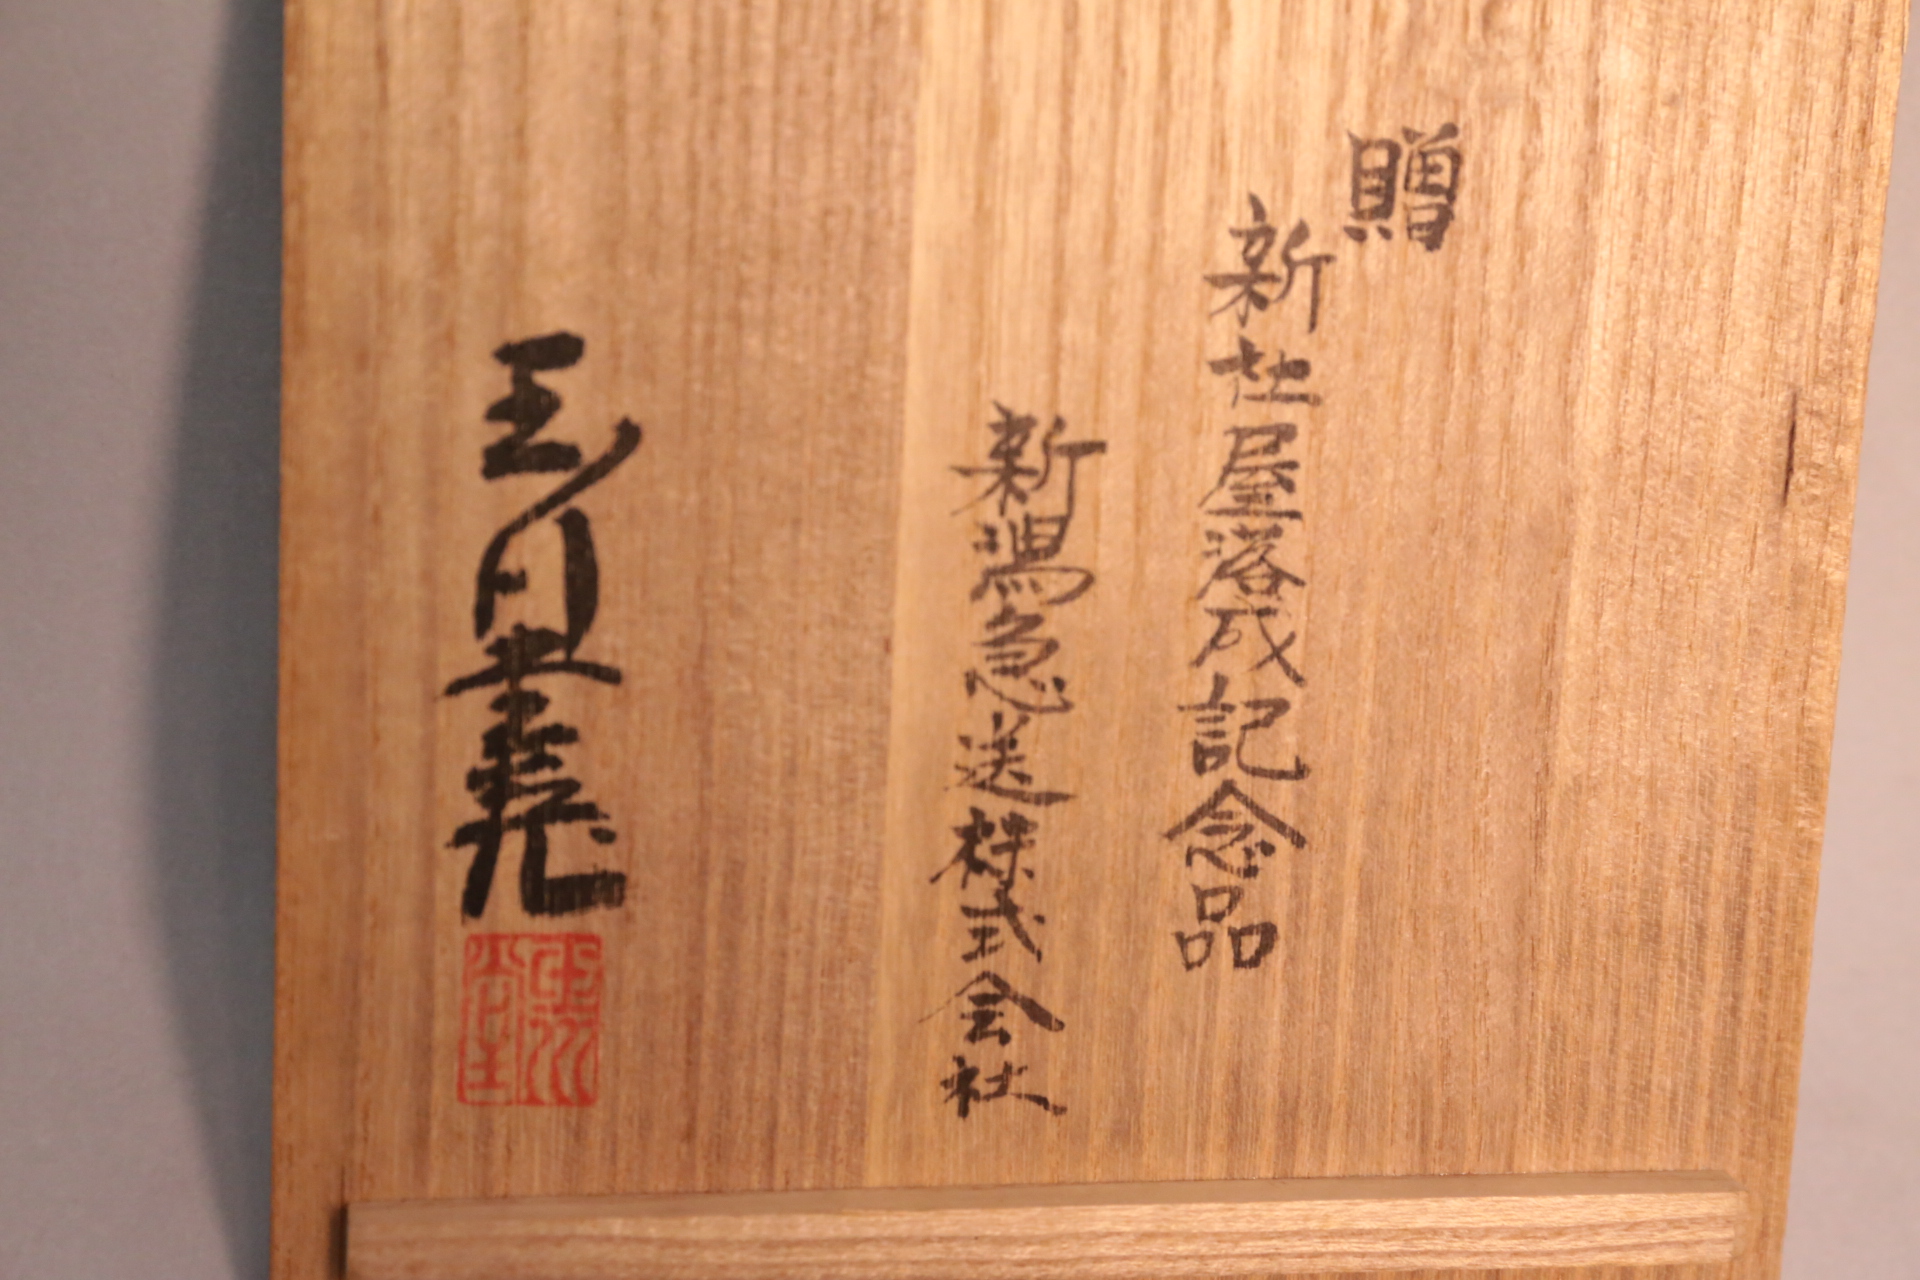 贈
新社屋落成記念品
新潟急送株式会社
玉川
堂